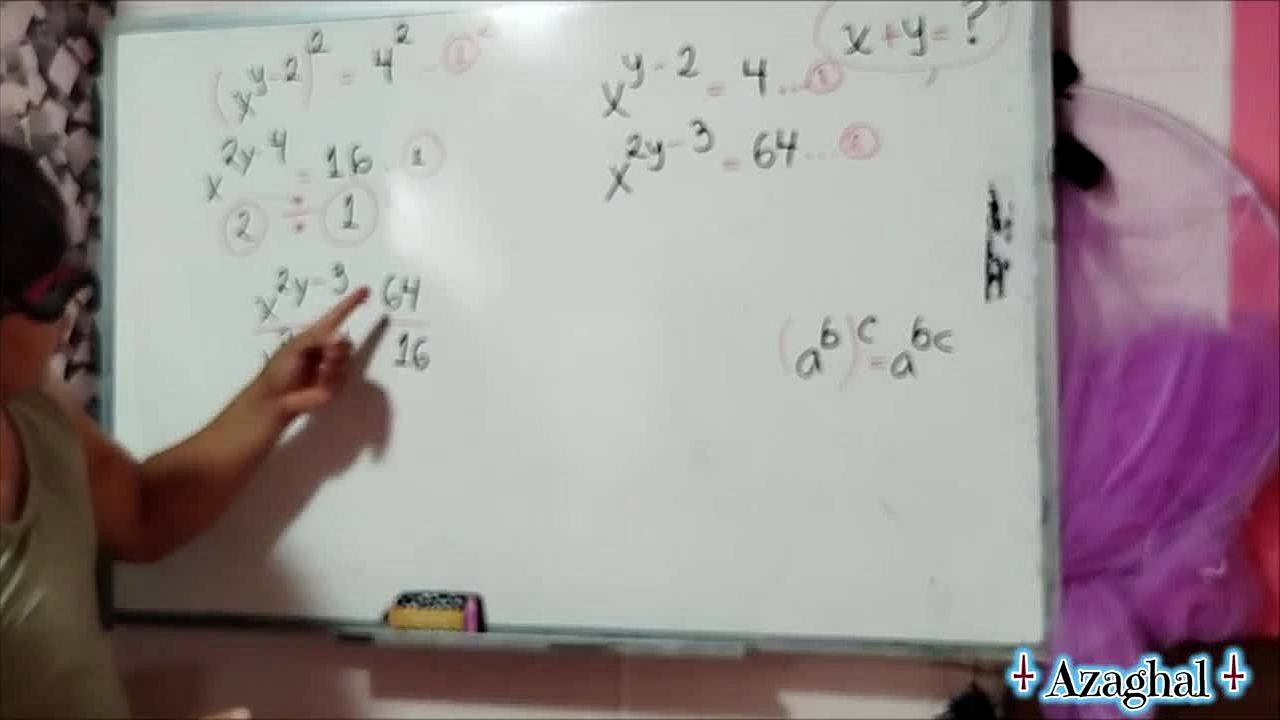 (x^{y-2})^2 = 4^2 ... ①^2
x^{2y-4} = 16 ... ①
② ÷ ①
x^{2y-3} 64
16
x+y=?
x^{y-2} = 4 ... ①
x^{2y-3} = 64 ... ②
(a^b)^c = a^{bc}
Azaghal